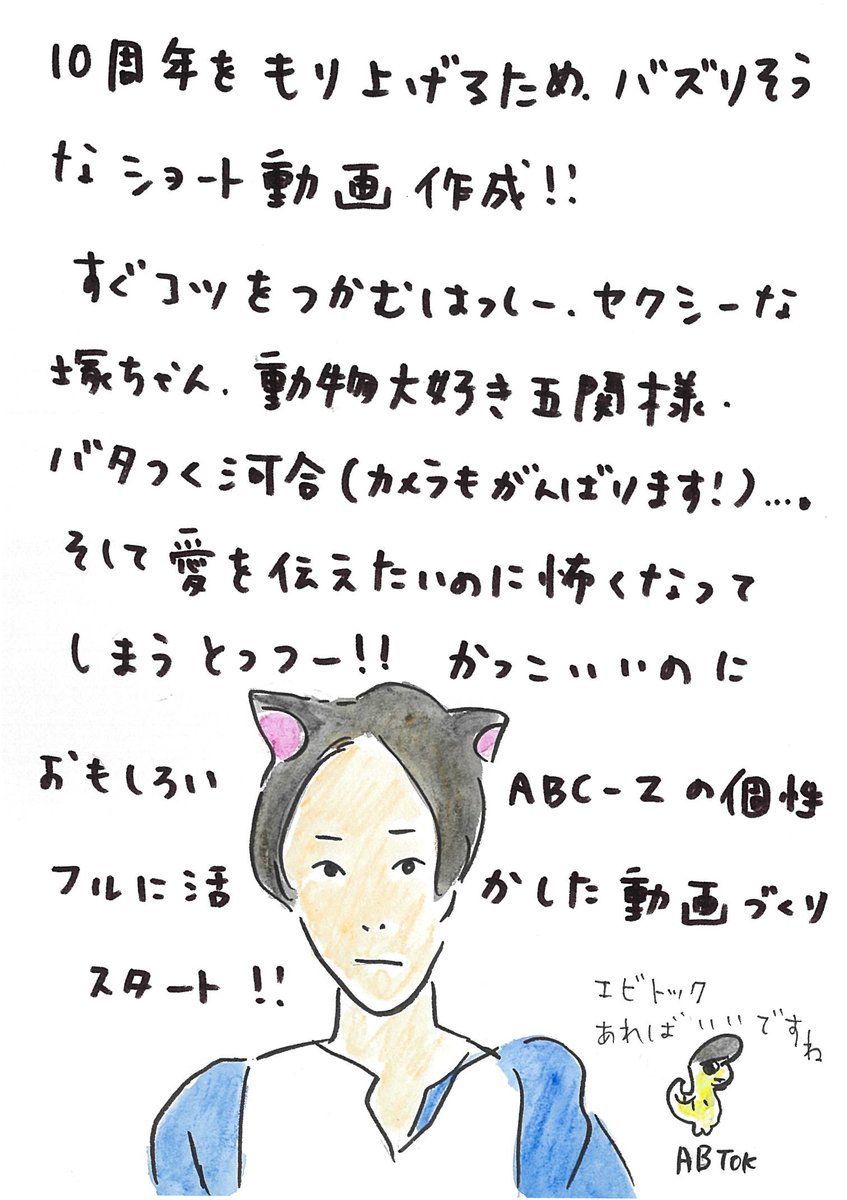 10周年をもり上げるため、バズりそう
なショート動画作成!!
すぐコツをつかむはっしー、セクシーな
塚ちゃん、動物大好き五関様、
バタつく河合(カメラもがんばります!)…。
そして愛を伝えたいのに怖くなって
しまうとっつー!! かっこいいのに
おもしろい ABC-Zの個性
フルに活かした動画づくり
スタート!!
エビトック
あればいいですね
ABTOK